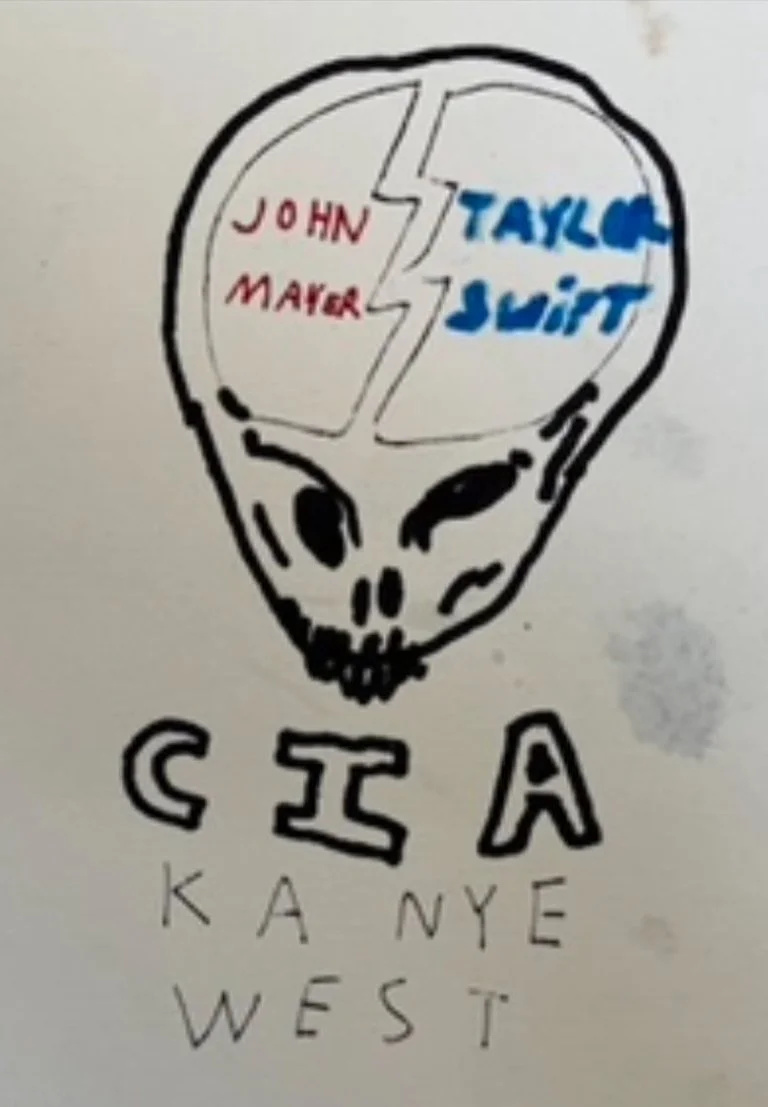 JOHN
MAYER
TAYLOR
SWIFT
CIA
KANYE
WEST